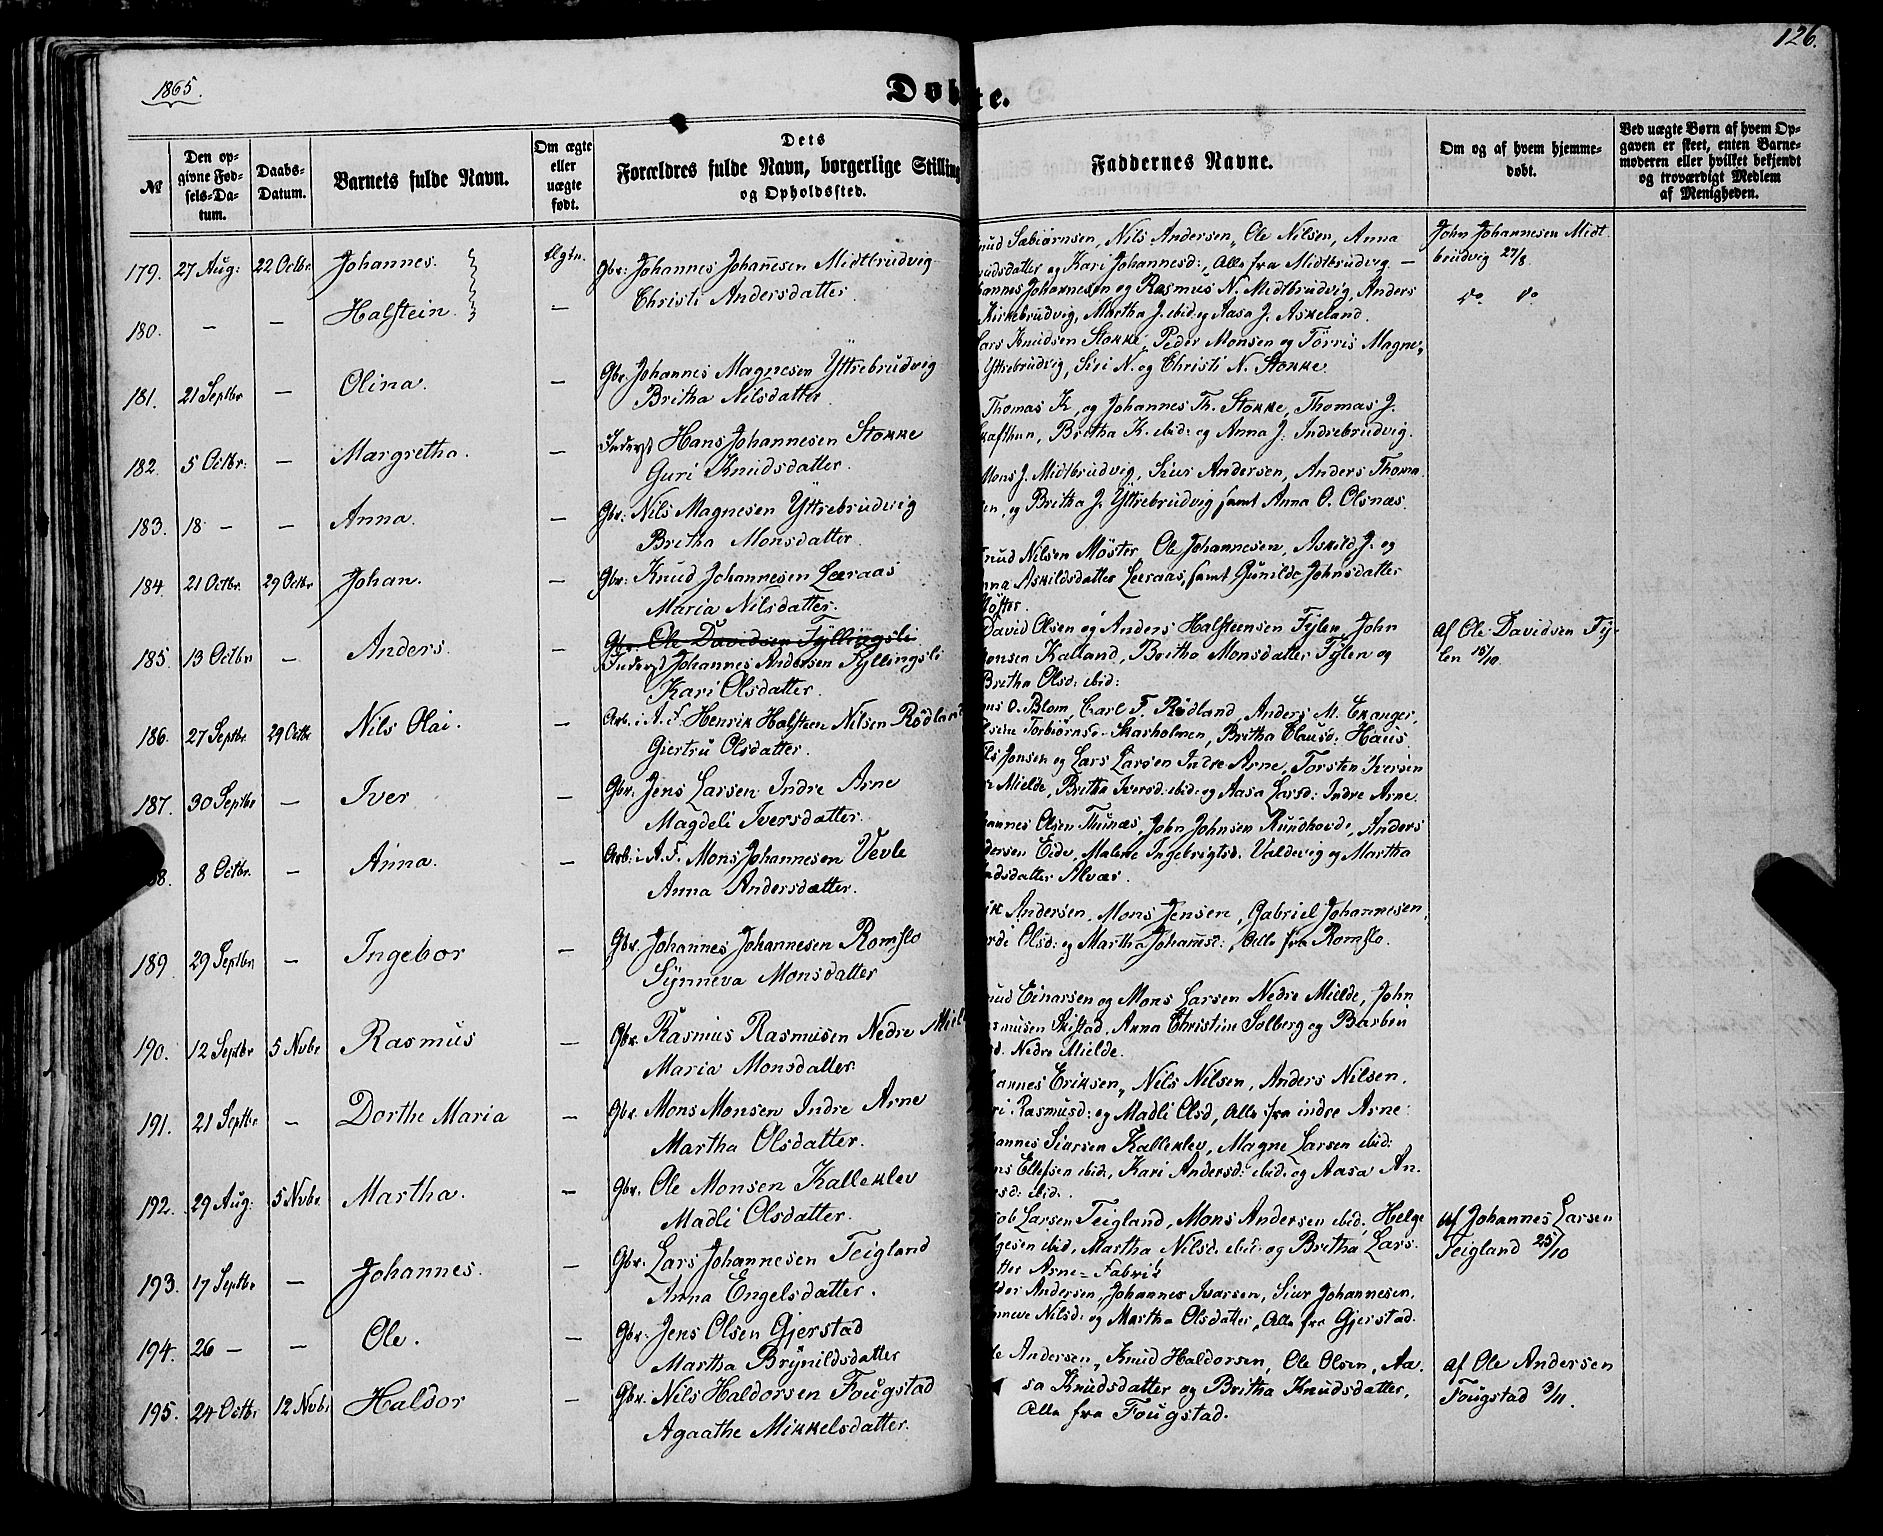 1865.
126.
Døbte.
№
Den opgivne Fødsels-Datum.
Daabs-Datum.
Barnets fulde Navn.
Om ægte eller uægte født.
Dets Forældres fulde Navn, borgerlige Stilling og Opholdssted.
Faddernes Navne.
Om og af hvem hjemmedøbt.
Ved uægte Børn af hvem Opgaven er skeet, enten Barnemoderen eller hvilket bekjendt og troværdigt Medlem af Menigheden.
179. 27 Aug: 22 Octbr. Johannes. Ægtn. Gbr: Johannes Johannesen Midtbrudvig
Christi Andersdatter.
nud Sæbiørnsen, Nils Andersen, Ole Nilsen, Anna
udsdatter og Kari Johannesd:, Alle fra Midtbrudvig. —
John Johannesen Midt
brudvig 27/8.
180. — — Halstein. —
hannes Johannesen og Rasmus N. Midtbrudvig, Anders
Kirkebrudvig, Martha J. ibid: og Aasa J. Askeland.
do do
181. 21 Septbr — Olina. — Gbr. Johannes Magnesen Yttrebrudvig
Britha Nilsdatter.
Lars Knudsen Stokke, Peder Monsen og Tørris Magne,
Yttrebrudvig, Siri N. og Christi N. Stokke.
182. 5 Octbr: — Margretha. — Inderst Hans Johannesen Stokke
Guri Knudsdatter.
Thomas K, og Johannes Th. Stokke, Thomas J.
kafthun, Britha K. ibid: og Anna J. Indrebrudvig.
183. 18 — — Anna. — Gbr: Nils Magnesen Yttrebrudvig
Britha Monsdatter.
Mons J. Midtbrudvig, Siur Andersen, Anders Thoma
en, og Britha J. Yttrebrudvig samt Anna O. Olsnæs.
184. 21 Octbr. 29 Octbr Johan. — Gbr: Knud Johannesen Leeraas
Maria Nilsdatter.
nud Nilsen Møster Ole Johannesen, Askild J. og
nna Askildsdatter Leeraas, samt Gunilde Johnsdatter
Møster.
185. 13 Octbr — Anders. — Gbr. Ole Davidsen Fyllingsli
Inderst Johannes Andersen Fyllingsli
Kari Olsdatter.
David Olsen og Anders Halsteensen Fylen, John
Monsen Kalland, Britha Monsdatter Fylen og
Britha Olsd: ibid:
Af Ole Davidsen Fy-
len 15/10.
186. 27 Septbr. 29 Octbr Nils Olai. — Arb. i A. F. Henrik Halsteen Nilsen Rødland
Giertru Olsdatter.
ns O. Blom, Carl F. Rødland, Anders M. Ekanger,
lsine Torbiørnsd. Skarholmen, Britha Clausd: Haus
187. 30 Septbr — Iver — Gbr. Jens Larsen Indre Arne
Magdeli Iversdatter.
ls Jensen og Lars Larsen Indre Arne, Torsten Iversen
Mielde, Britha Iversd: ibid: og Aasa Larsd: Indre Arne.
188. 8 Octbr. — Anna. — Arb: i A. F. Mons Johannesen Vevle
Anna Andersdatter.
annes Olsen Thunæs, John Johnsen Rundhovde, Anders
dersen Eide, Malene Ingebrigtsd. Valdevig og Martha
adsdatter Alvær.
189 29 Septbr. — Ingebor — Gbr. Johannes Johannesen Romslo
Synneva Monsdatter
Andersen, Mons Jensen, Gabriel Johannesen,
Olsd: og Martha Johannsd:, Alle fra Romslo.
190. 12 Septbr 5 Nvbr Rasmus — Gbr. Rasmus Rasmusen Nedre Miel
Maria Monsdatter
nud Einarsen og Mons Larsen Nedre Mielde, John
smusen Skistad, Anna Christine Solberg og Barbin
sd. Nedre Mielde.
191. 21 Septbr — Dorthe Maria — Gbr. Mons Monsen Indre Arne
Martha Olsdatter.
hannes Eriksen, Nils Nilsen, Anders Nilsen,
ri Rasmusd: og Madli Olsd, Alle fra indre Arne.
192. 29 Aug: 5 Nvbr. Martha. — Gbr. Ole Monsen Kalleklev
Madli Olsdatter.
hannes Siursen Kalleklev, Magne Larsen ibid:
ns Ellefsen ibid:, Kari Andersd: ibid: og Aasa An-
sd: ibid:.
193. 17 Septbr — Johannes. — Gbr. Lars Johannesen Teigland
Anna Engelsdatter.
cob Larsen Teigland, Mons Andersen ibid, Helge
lgesen ibid, Martha Nilsd. ibid: og Britha Lars-
tter Arne-Fabrik
Af Johannes Larsen
Teigland 25/10
194. 26 — — Ole. — Gbr. Jens Olsen Gjerstad
Martha Brynildsdatter
der Andersen, Johannes Ivarsen, Siur Johannesen,
nneve Nilsd: og Martha Olsdatter, Alle fra Gjerstad.
195. 24 Octbr 12 Nvbr. Haldor — Gbr. Nils Haldorsen Fougstad
Agaathe Mikkelsdatter.
le Andersen, Knud Haldorsen, Ole Olsen, Aa-
sa Knudsdatter og Britha Knudsdatter,
Alle fra Fougstad.
Af Ole Andersen
Fougstad 3/11.